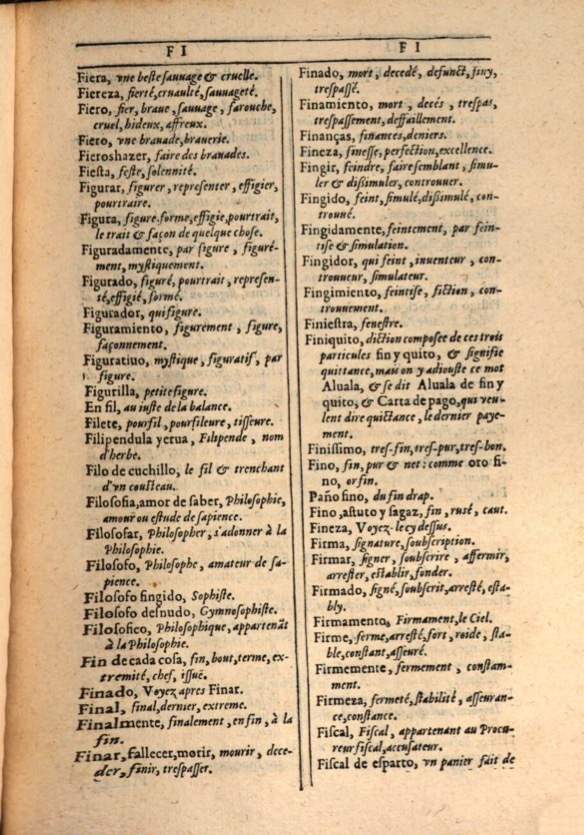 FI
Fiera, vne beste sauuage & cruelle.
Fiereza, fierté, cruaulté, sauuageté.
Fiero, fier, braue, sauuage, farouche,
cruel, hideux, affreux.
Fiero, vne brauade, brauerie.
Fieroshazer, faire des brauades.
Fiesta, feste, solennité.
Figurar, figurer, representer, effigier,
pourtraire.
Figura, figure. forme, effigie, pourtrait,
le trait & façon de quelque chose.
Figuradamente, par figure, figuré-
ment, mystiquement.
Figurado, figuré, pourtrait, represen-
té, effigié, formé.
Figurador, qui figure.
Figuramiento, figurement, figure,
façonnement.
Figuratiuo, mystique, figuratif, par
figure.
Figurilla, petite figure.
En fil, au iuste de la balance.
Filete, pourfil, pourfileure, tisseure.
Filipendula yerua, Filipende, nom
d'herbe.
Filo de cuchillo, le fil & trenchant
d'vn cousteau.
Filosofia, amor de saber, Philosophie,
amour ou estude de sapience.
Filosofar, Philosopher, s'adonner à la
Philosophie.
Filosofo, Philosophe, amateur de sa-
pience.
Filosofo fingido, Sophiste.
Filosofo desnudo, Gymnosophiste.
Filosofico, Philosophique, appartenãt
à la Philosophie.
Fin de cada cosa, fin, bout, terme, ex-
tremité, chef, issuë.
Finado, Voyez apres Finar.
Final, final, dernier, extreme.
Finalmente, finalement, en fin, à la
fin.
Finar, fallecer, morir, mourir, dece-
der, finir, trespasser.
FI
Finado, mort, decedé, defunct, finy,
trespassé.
Finamiento, mort, decés, trespas,
trespassement, deffaillement.
Finanças, finances, deniers.
Fineza, finesse, perfection, excellence.
Fingir, feindre, faire semblant, simu-
ler & dissimuler, controuuer.
Fingido, feint, simulé, dissimulé, con-
trouué.
Fingidamente, feintement, par fein-
tise & simulation.
Fingidor, qui feint, inuenteur, con-
trouueur, simulateur.
Fingimiento, feintise, fiction, con-
trouuement.
Finiestra, fenestre.
Finiquito, diction composee de ces trois
particules fin y quito, & signifie
quittance, mais on y adiouste ce mot
Aluala, & se dit Aluala de fin y
quito, & Carta de pago, qui veu-
lent dire quictance, le dernier paye-
ment.
Finissimo, tres-fin, tres-pur, tres-bon.
Fino, fin, pur & net: comme oro fi-
no, or fin.
Paño fino, du fin drap.
Fino, astuto y sagaz, fin, rusé, caut.
Fineza, Voyez-le cy dessus.
Firma, signature, soubscription.
Firmar, signer, soubscrire, affermir,
arrester, establir, fonder.
Firmado, signé, soubscrit, arresté, esta-
bly.
Firmamento, Firmament, le Ciel.
Firme, ferme, arresté, fort, roide, sta-
ble, constant, asseuré.
Firmemente, fermement, constam-
ment.
Firmeza, fermeté, stabilité, asseuran-
ce, constance.
Fiscal, Fiscal, appartenant au Procu-
reur fiscal, accusateur.
Fiscal de esparto, vn panier fait de